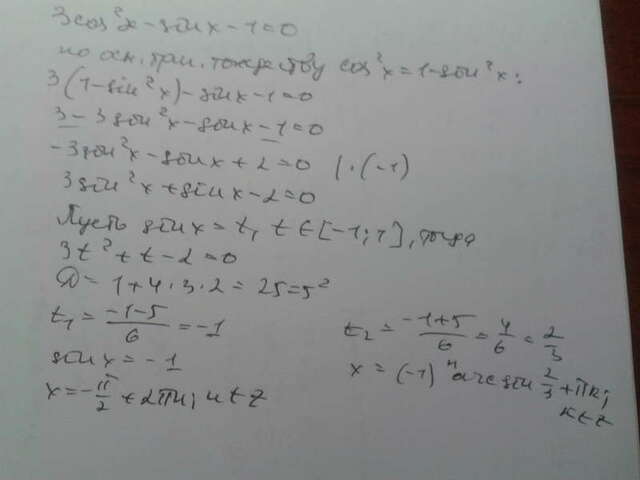 3cos²x-sinx-1=0
по осн. триг. тождеству cos²x=1-sin²x:
3(1-sin²x)-sinx-1=0
3-3sin²x-sinx-1=0
-3sin²x-sinx+2=0 |·(-1)
3sin²x+sinx-2=0
Пусть sinx=t, t∈[-1;1], тогда
3t²+t-2=0
D=1+4·3·2=25=5²
t₁=(-1-5)/6=-1
sinx=-1
x=-π/2+2πn, n∈Z
t₂=(-1+5)/6=4/6=2/3
x=(-1)ⁿarcsin 2/3+πk;
k∈Z